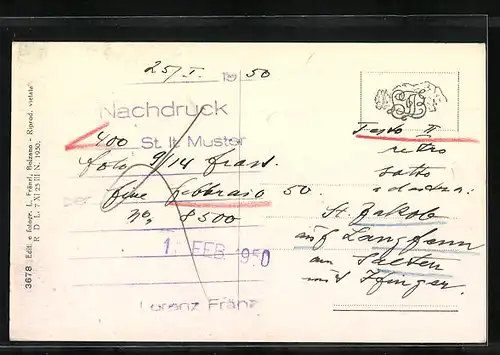 25/I. 1950
Nachdruck
400 St. lt. Muster
foto 9/14 fran.
per fine febbraio 50.
no. 8500
1. FEB 1950
Lorenz Fränzl
Testo II
retro
sotto
a destra:
St. Jakob
auf Langfenn
am Salten
mit Ifinger.
3678 Edit. e fotogr. L. Fränzl, Bolzano - Riprod. vietata
R D L. 7 XI 25 III N. 1950.